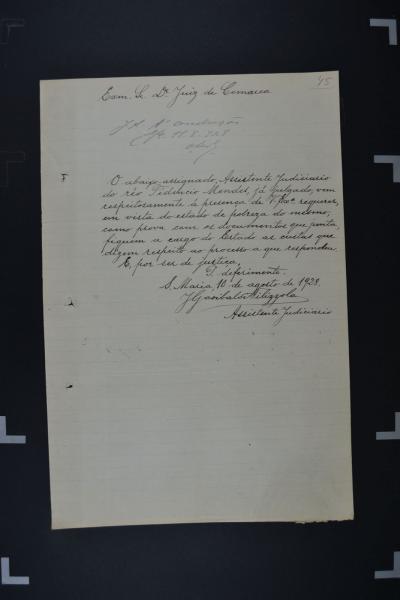 45
Exm. Sr. Dr. Juiz de Comarca
J. A. Á conclusão
11.8.928
O abaixo assignado, Assistente Judiciario
do réo Fidencio Mendes, já julgado, vem
respeitosamente á presença de V. Exa. requerer,
em vista do estado de pobreza do mesmo,
como prova com os documentos que junta,
fiquem a cargo do Estado as custas que
dizem respeito ao processo a que respondeu.
E, por ser de justiça,
P. deferimento.
S. Maria, 10 de agosto de 1928.
J Garibaldi Filizzola
Assistente Judiciario